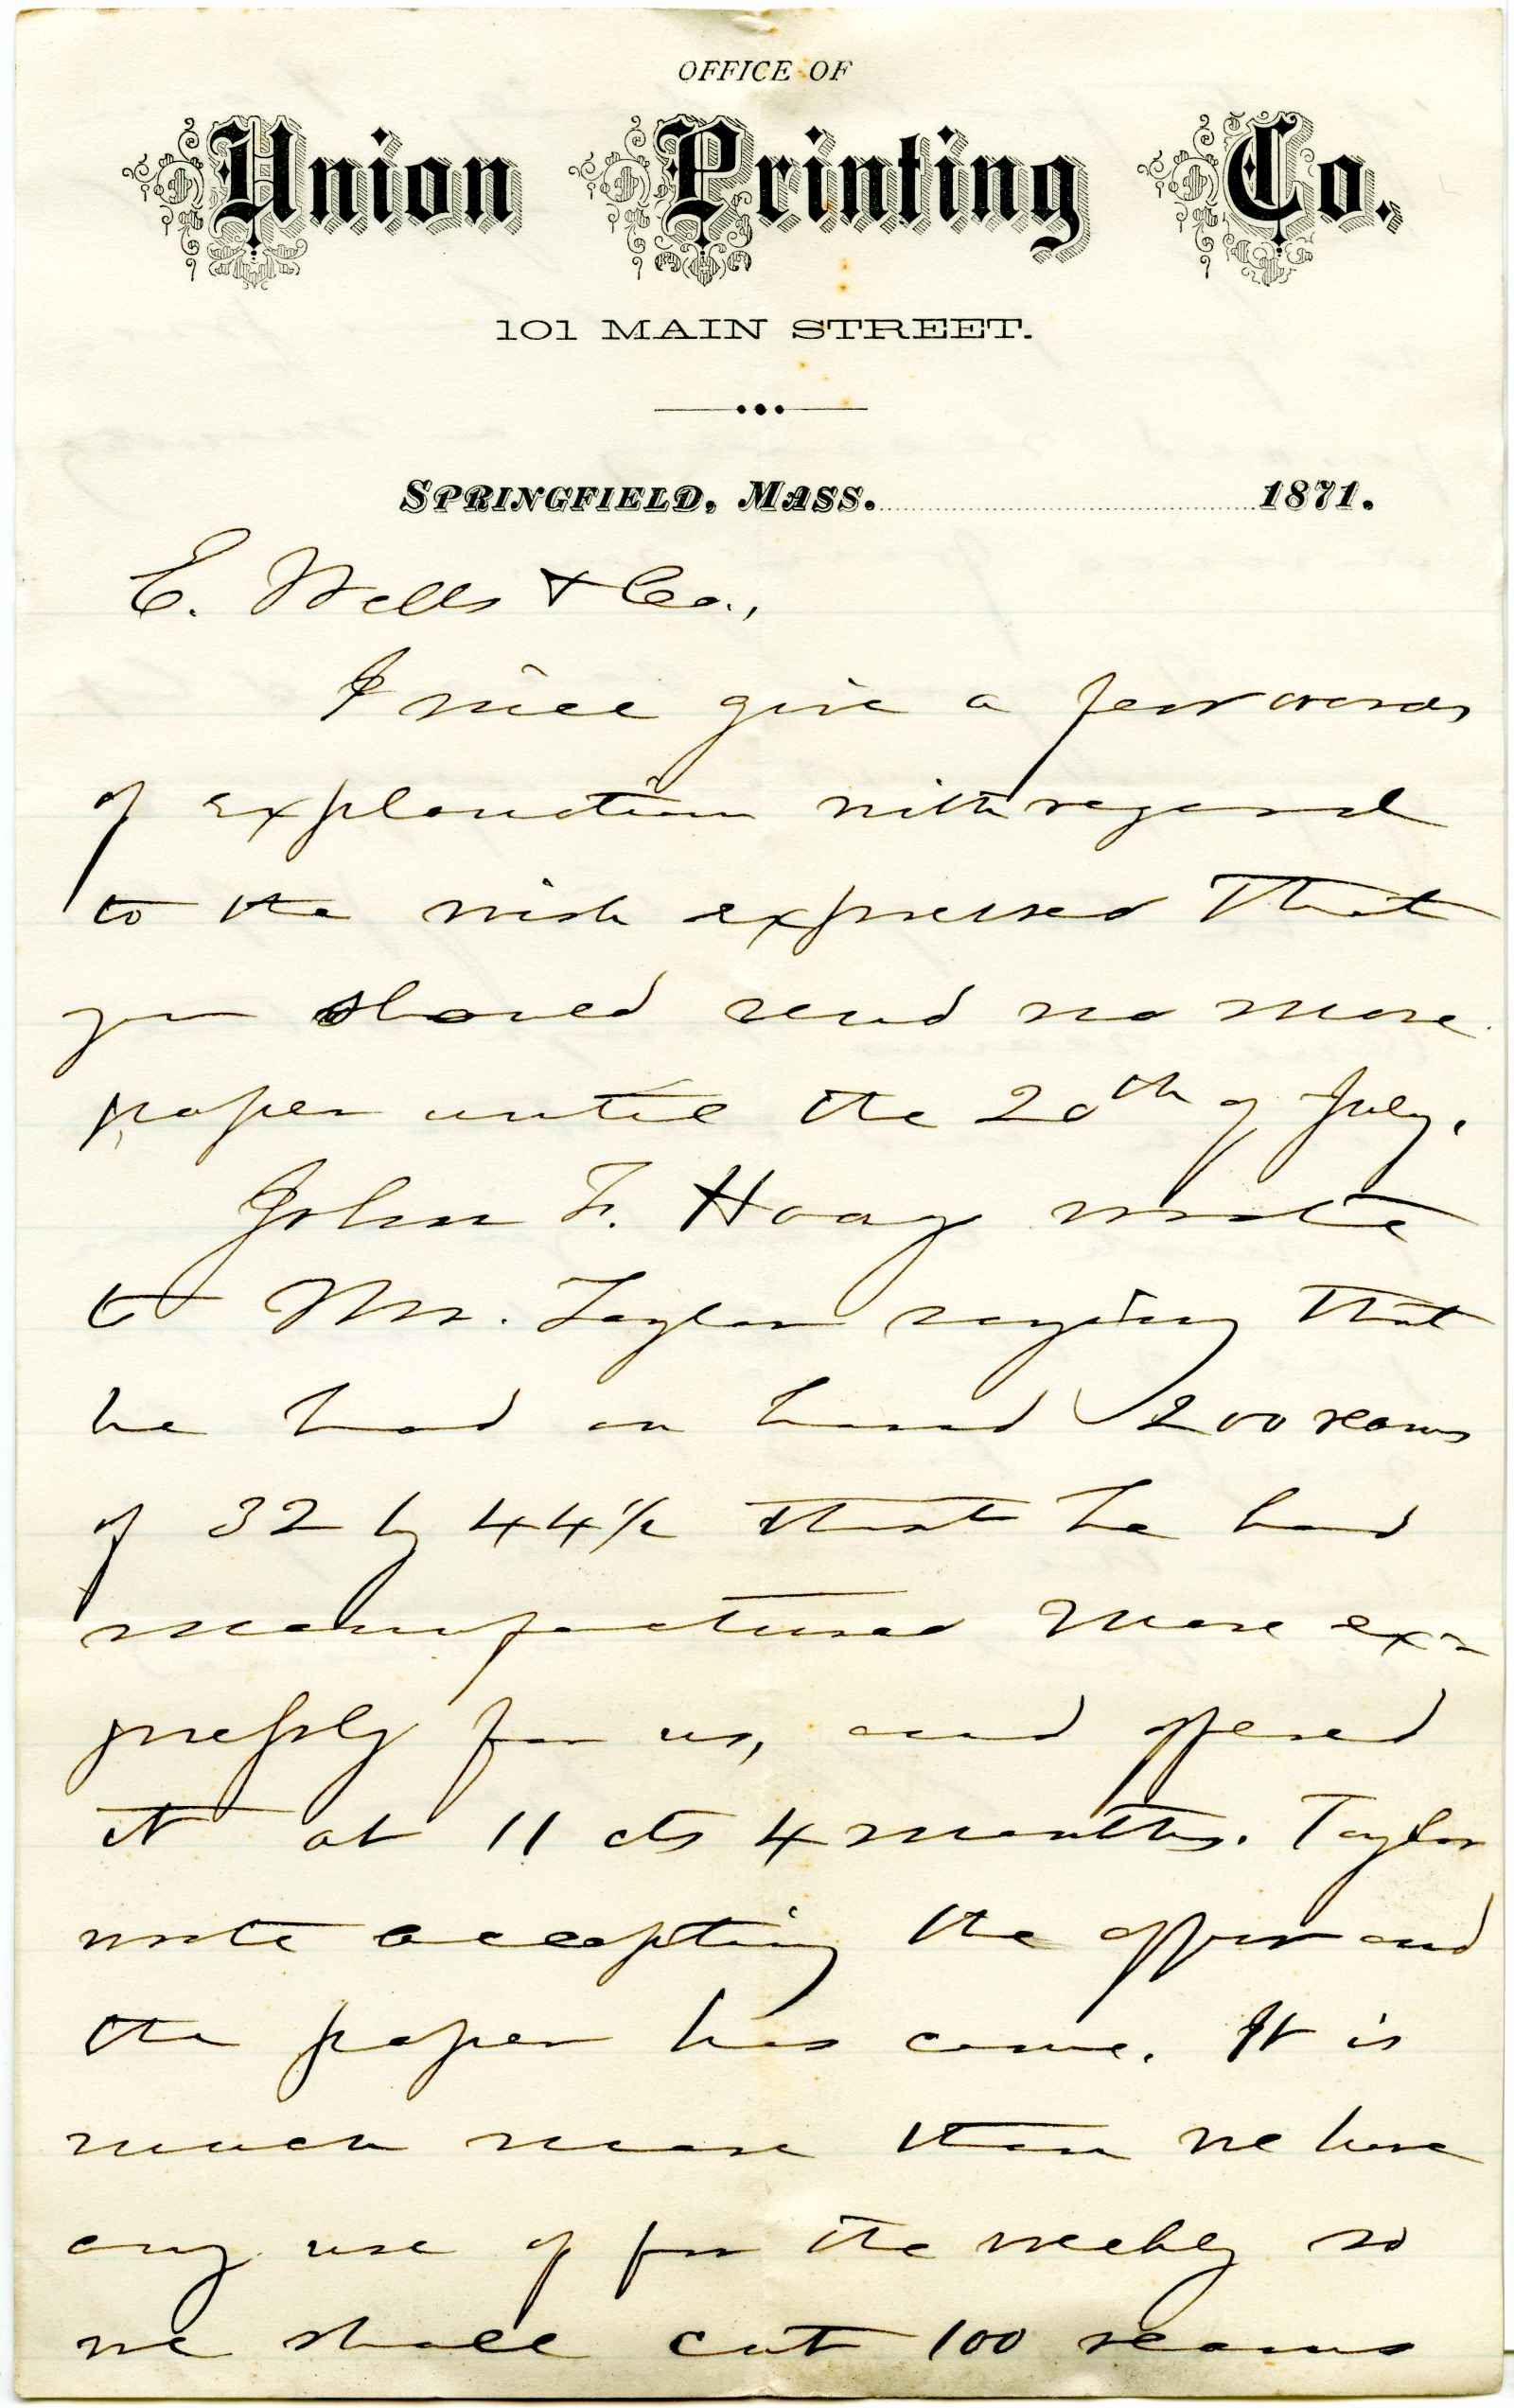 OFFICE OF
Union Printing Co.,
101 MAIN STREET.
SPRINGFIELD, MASS. 1871.
E. Wells & Co.,
I will give a few words
of explanation with regard
to the wish expressed that
you should send no more
paper until the 20th of July.
John F. Hoag wrote
to Mr. Taylor saying that
he had on hand 200 reams
of 32 by 44 1/2 that he had
manufactured more ex=
pressly for us, and offered
it at 11 cts 4 months. Taylor
wrote accepting the offer and
the paper has come. It is
much more than we have
any use of for the weekly so
we shall cut 100 reams